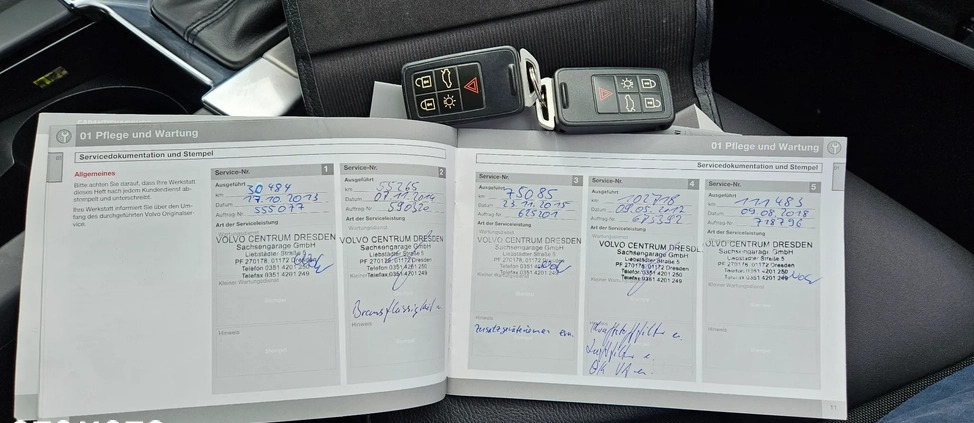 01 Pflege und Wartung
Servicedokumentation und Stempel
Allgemeines
Bitte achten Sie darauf, dass Ihre Werkstatt
dieses Heft nach jedem Kundendienst ab-
stempelt und unterschreibt.
Ihre Werkstatt informiert Sie über den Um-
fang des durchgeführten Volvo Originalser-
vice.
Service-Nr. 1
Ausgeführt
km 30 484
Datum 17.10.2013
Auftrag-Nr. 555077
Art der Serviceleistung
VOLVO CENTRUM DRESDEN
Sachsengarage GmbH
Liebstädter Straße 5
PF 270178, 01172 Dresden
Telefon 0351 4201 250
Telefax 0351 4201 249
Kleiner Wartungsdienst
Hinweis
Service-Nr. 2
Ausgeführt
km 55265
Datum 07.11.2014
Auftrag-Nr. 590320
Art der Serviceleistung
VOLVO CENTRUM DRESDEN
Sachsengarage GmbH
Liebstädter Straße 5
PF 270178, 01172 Dresden
Telefon 0351 4201 250
Telefax 0351 4201 249
Bremsflüssigkeit
Hinweis
01 Pflege und Wartung
Servicedokumentation und Stempel
Service-Nr. 3
Ausgeführt
km 75085
Datum 23.11.2015
Auftrag-Nr. 625201
Art der Serviceleistung
VOLVO CENTRUM DRESDEN
Sachsengarage GmbH
Liebstädter Straße 5
PF 270178, 01172 Dresden
Telefon 0351 4201 250
Telefax 0351 4201 249
Kleiner Wartungsdienst
Hinweis
Service-Nr. 4
Ausgeführt
km
Datum
Auftrag-Nr. 675392
Art der Serviceleistung
VOLVO CENTRUM DRESDEN
Sachsengarage GmbH
Liebstädter Straße 5
PF 270178, 01172 Dresden
Telefon 0351 4201 250
Telefax 0351 4201 249
Hinweis
Kraftstofffilter e.
Luftfilter e.
Service-Nr. 5
Ausgeführt
km 111 483
Datum 09.08.2018
Auftrag-Nr. 718796
Art der Serviceleistung
VOLVO CENTRUM DRESDEN
Sachsengarage GmbH
Liebstädter Straße 5
PF 270178, 01172 Dresden
Telefon 0351 4201 250
Telefax 0351 4201 249
Kleiner Wartungsdienst
Hinweis
11